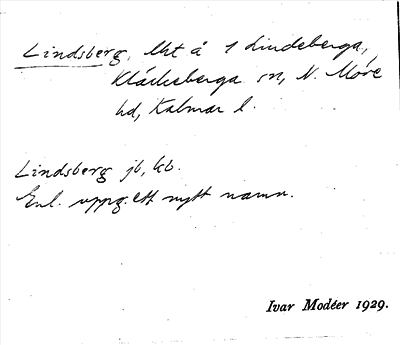 Lindsberg, lht å 1 Lindeberga,
Kläckeberga sn, N. Möre
hd, Kalmar l.
Lindsberg jb, kb.
Enl. uppg. ett nytt namn.
Ivar Modéer 1929.